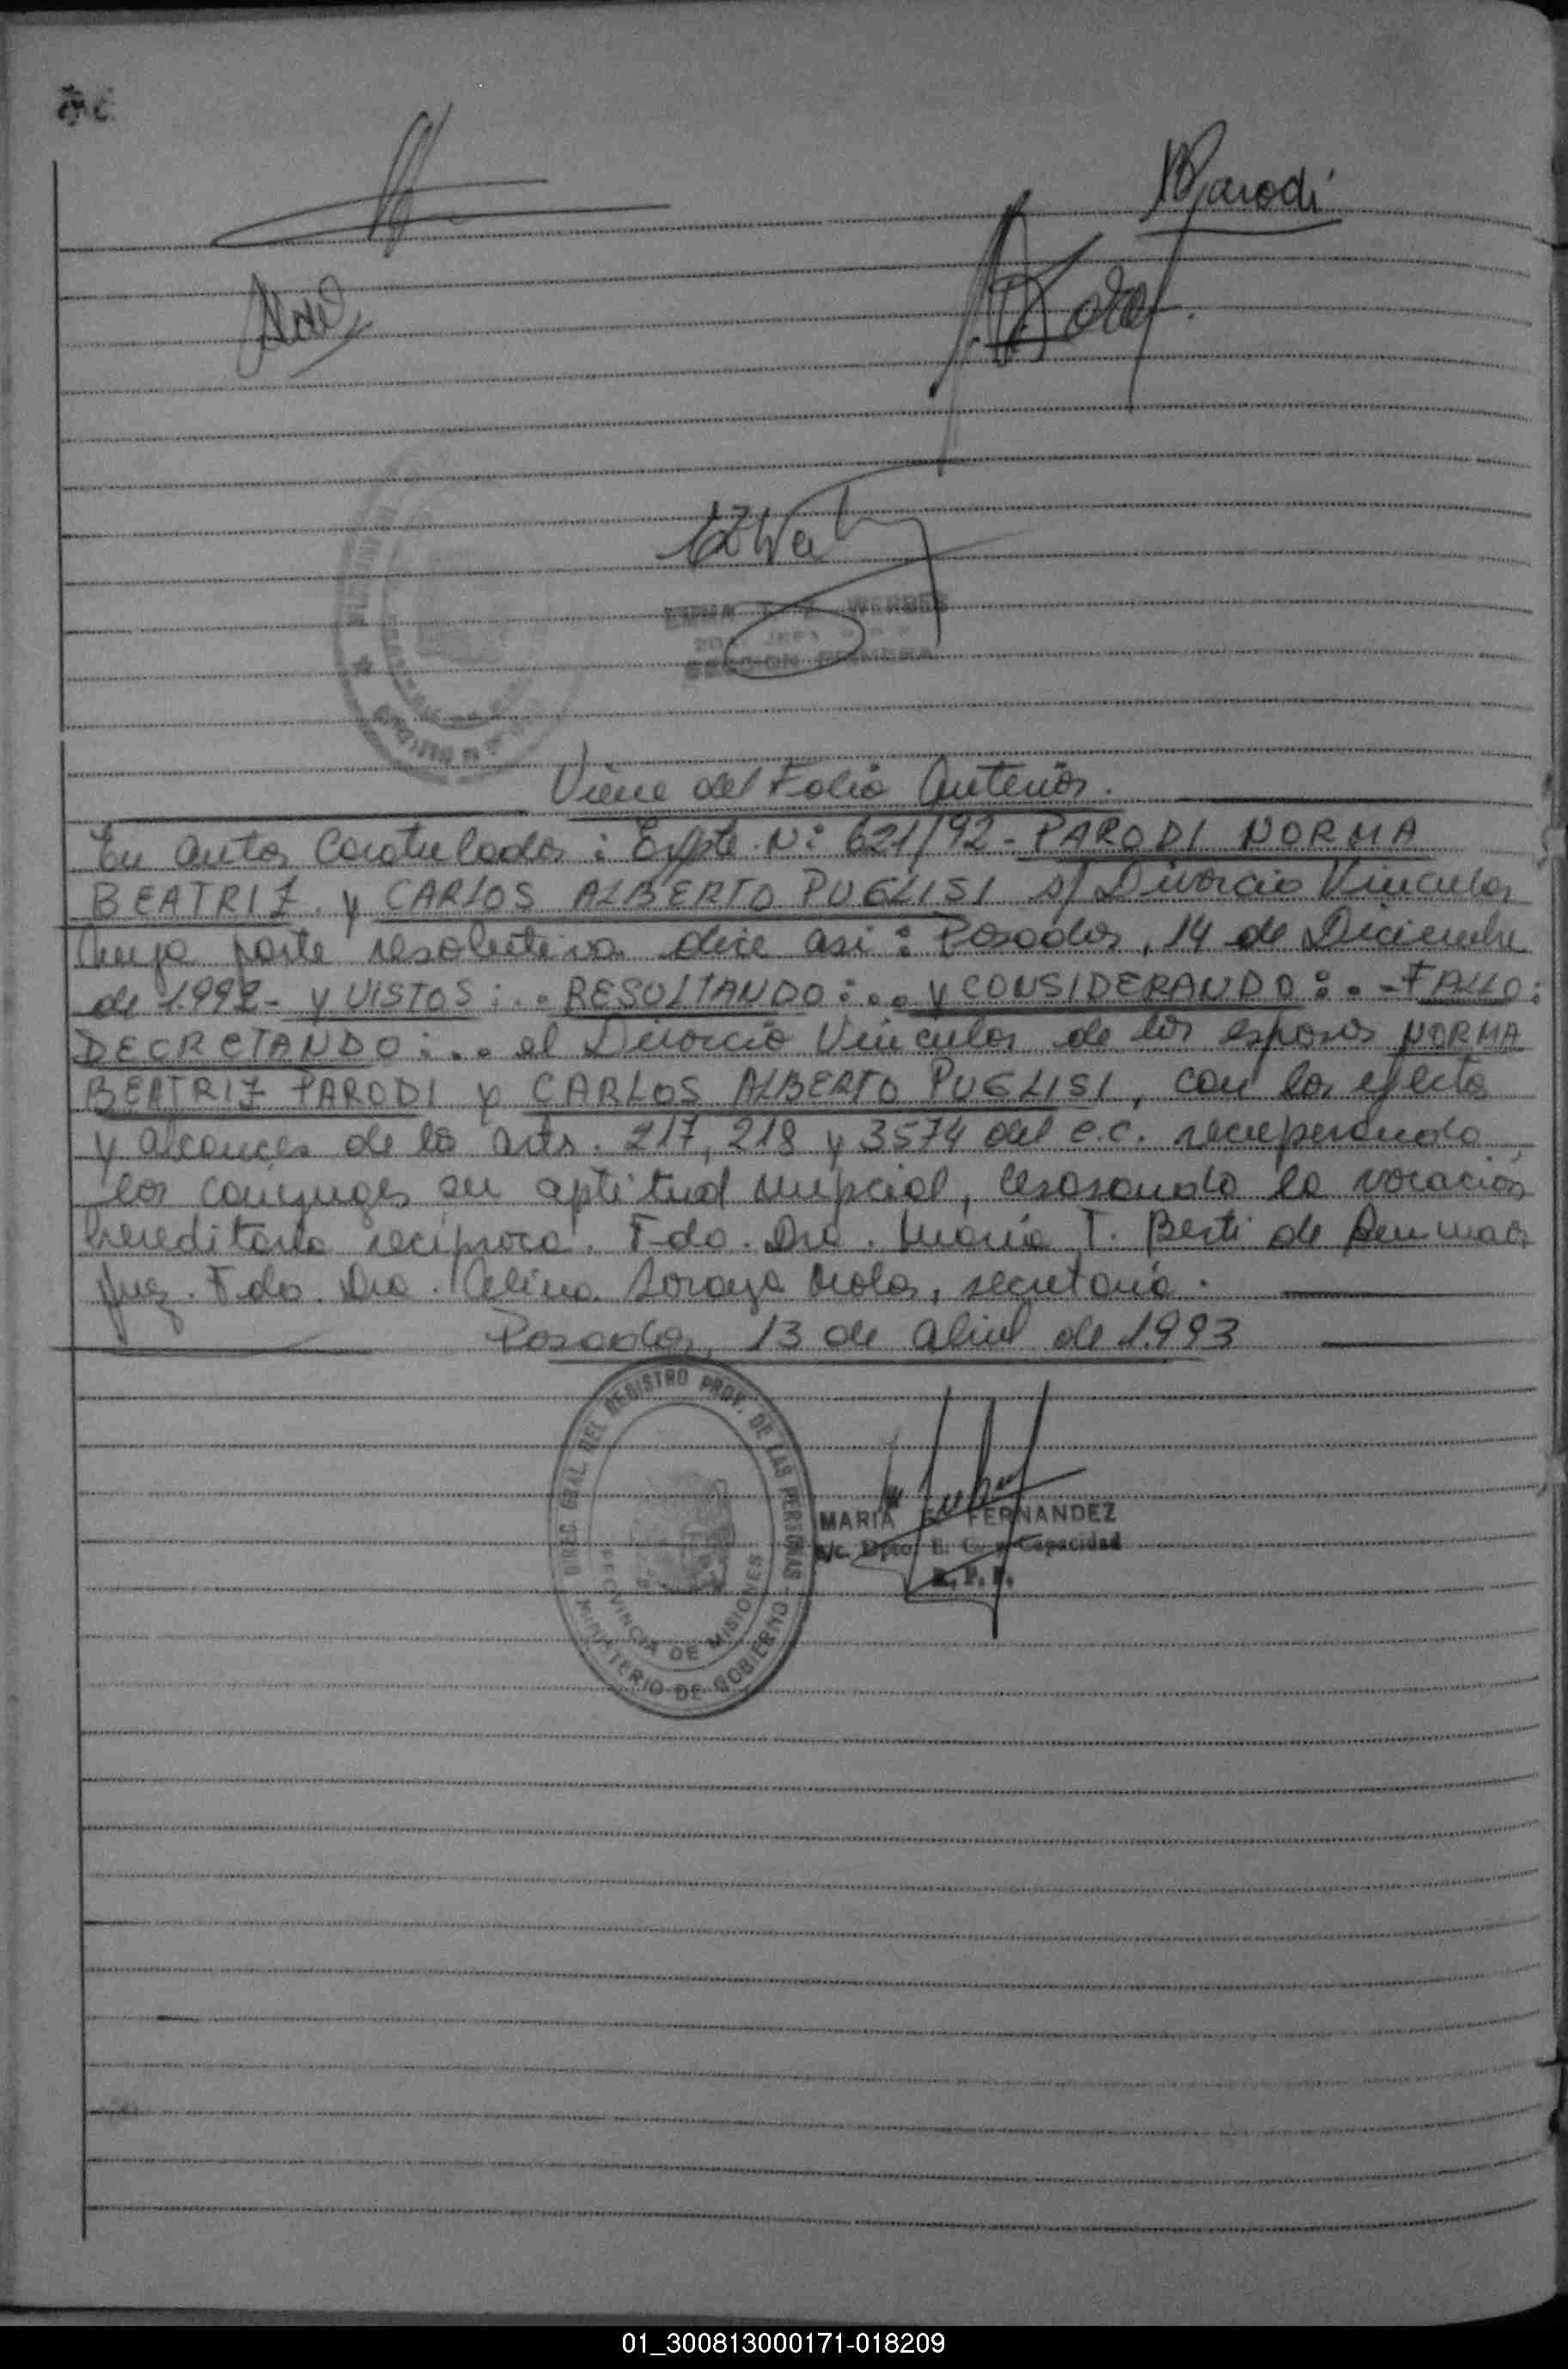 Parodi
WERBES
SECCION PRIMERA
Viene del Folio Anterior.
En autos Caratulados: Expte. Nº 621/92 - PARODI NORMA
BEATRIZ y CARLOS ALBERTO PUGLISI s/ Divorcio Vincular
Cuya parte resolutiva dice asi: Posadas, 14 de Diciembre
de 1.992- y VISTOS:.. RESULTANDO:.. y CONSIDERANDO:..-FALLO:
DECRETANDO:... el Divorcio Vincular de los esposos NORMA
BEATRIZ PARODI y CARLOS ALBERTO PUGLISI, con los efectos
y alcances de los arts. 217, 218 y 3574 del C.C. recuperando
los conyuges su aptitud nupcial, cesasando la vocación
hereditaria recíproca. Fdo. Dra. María T. Berti de
Juez. Fdo. Dra. Celina Soraya Molas, secretaria.
Posadas, 13 de abril de 1.993
DIREC. GRAL. DEL REGISTRO PROV. DE LAS PERSONAS
PROVINCIA DE MISIONES
MINISTERIO DE GOBIERNO
MARIA FERNANDEZ
a/c. Dpto. E. C. y Capacidad
R. P. P.
01_300813000171-018209